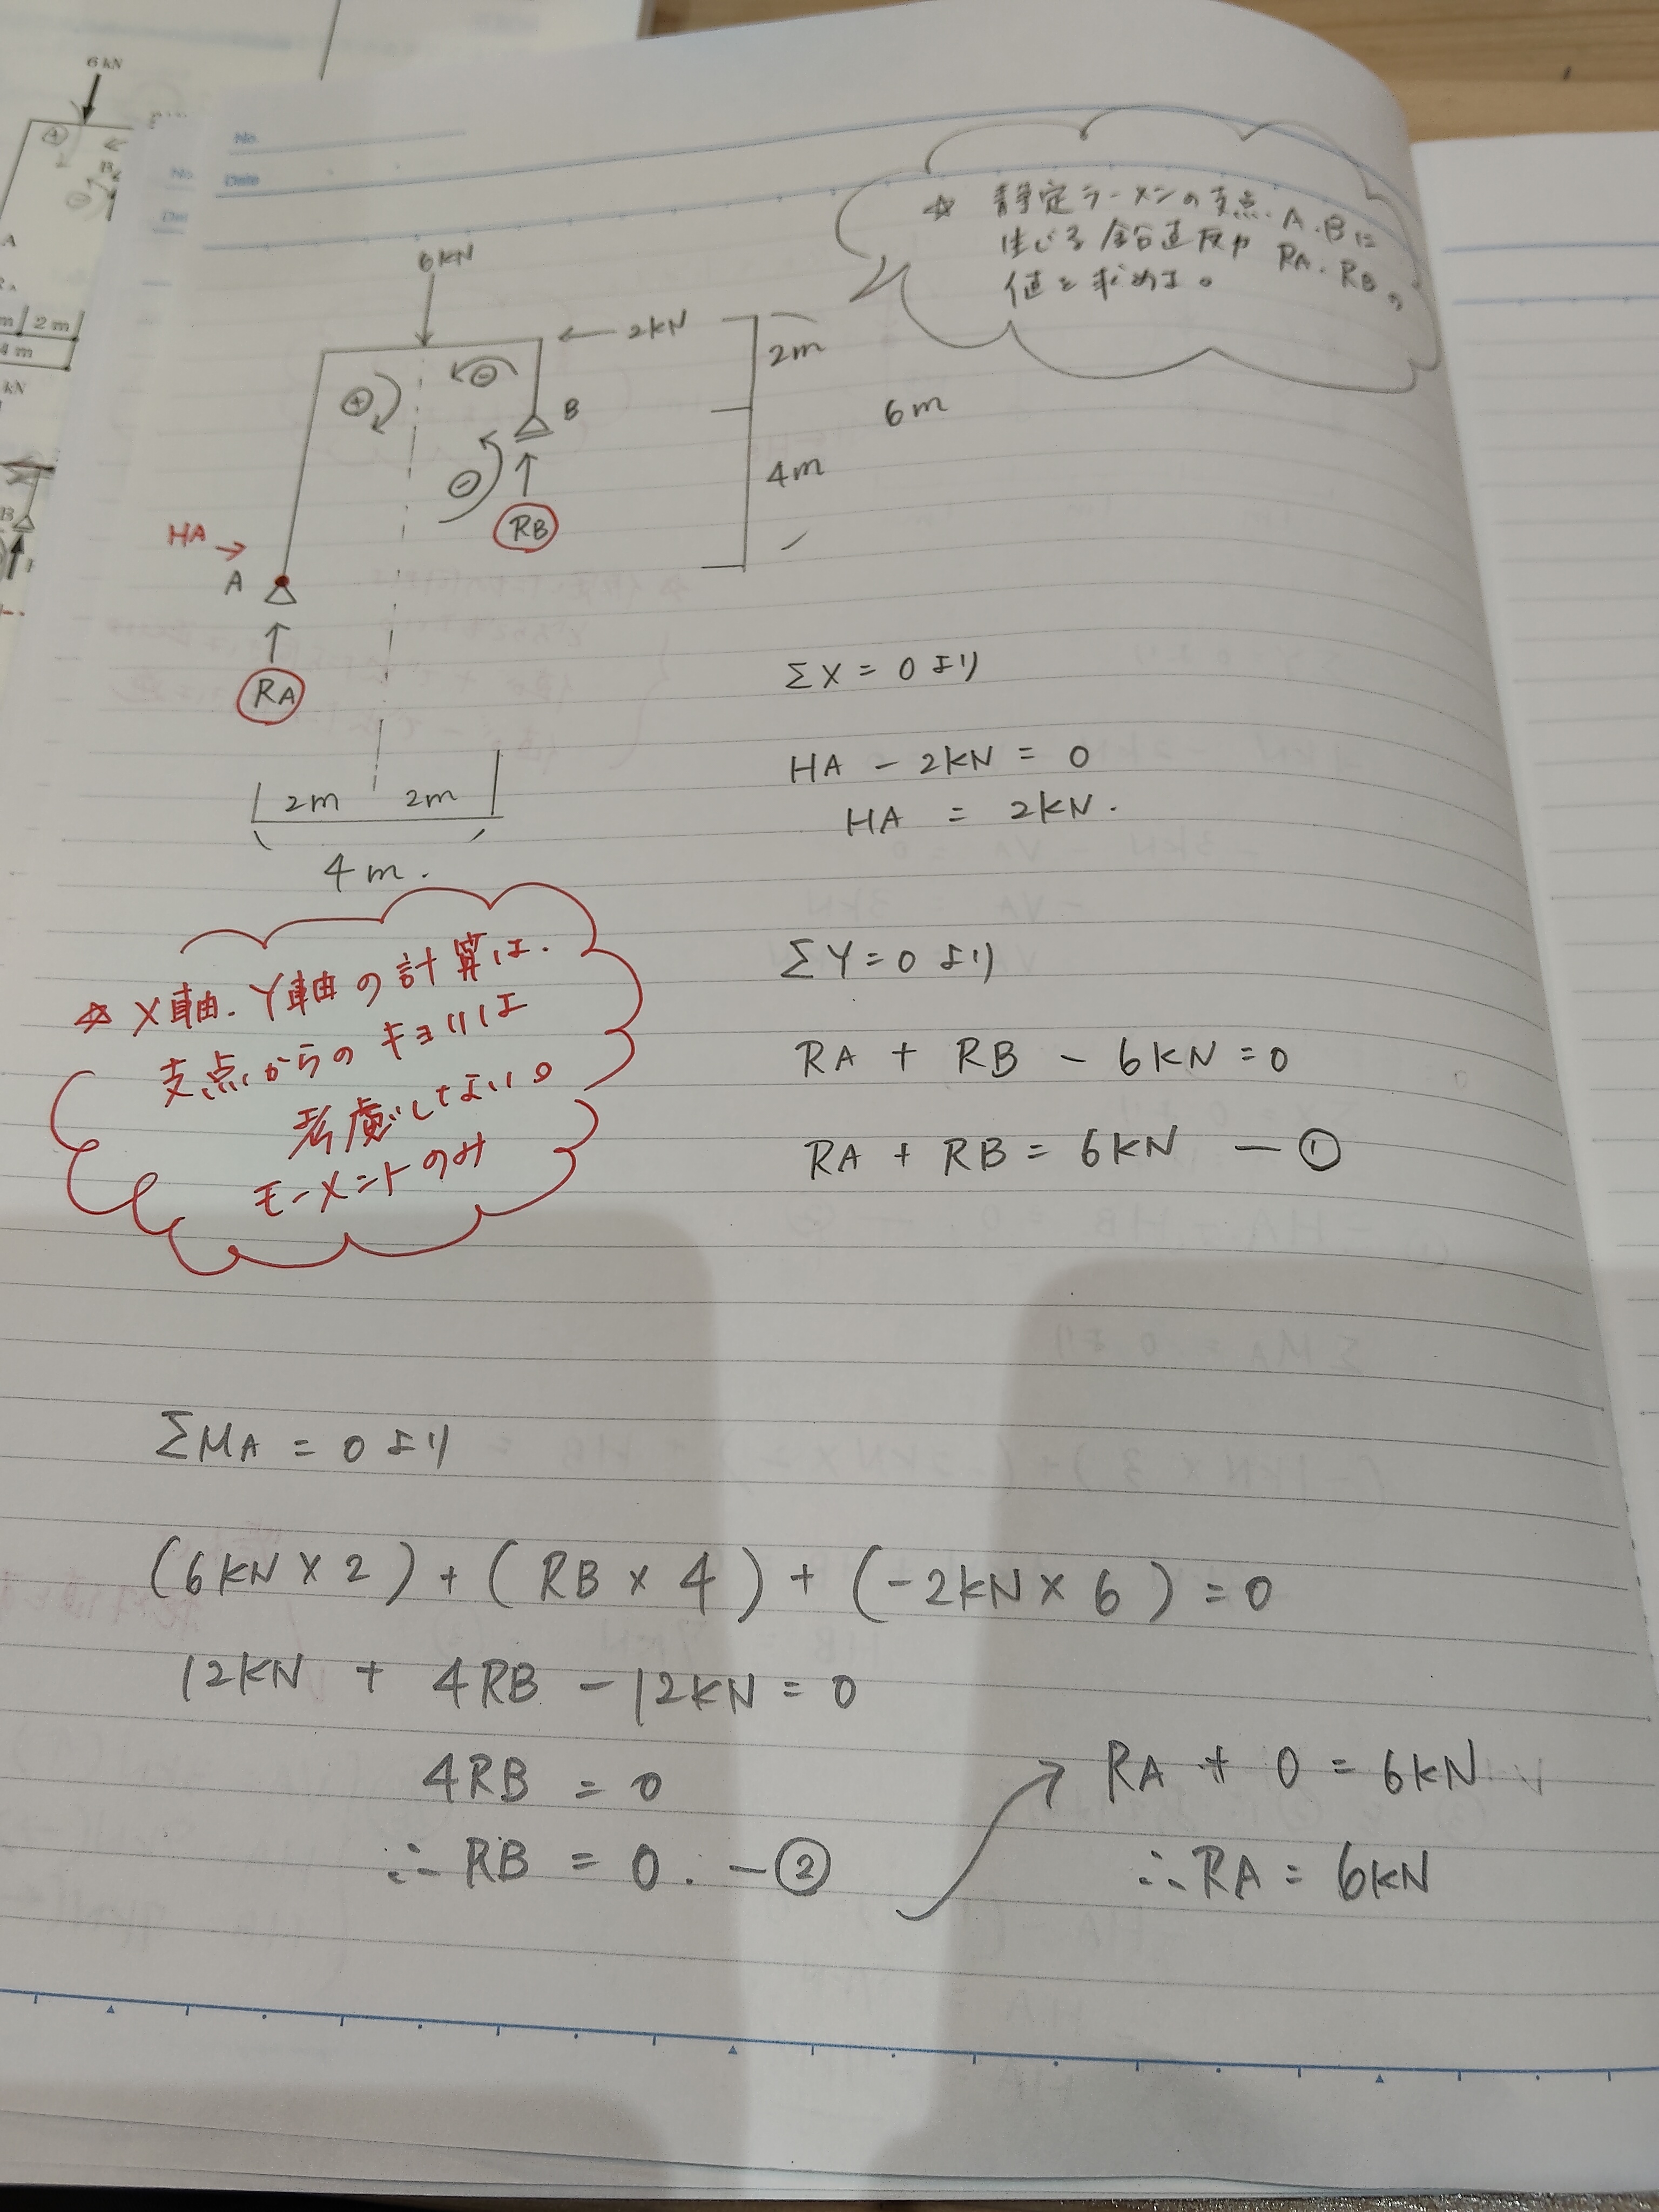 6 kN
B
A
2 m
4 m
kN
B
No.
Date
No.
☆ 静定ラーメンの支点.A.Bに
生じる鉛直反力 RA.RBの
値を求めよ。
6kN
2kN
2m
⊕
⊖
B
6m
⊖
4m
RB
HA →
A
RA
2m 2m
4m.
ΣX = 0 より
HA - 2kN = 0
HA = 2kN.
☆ X軸.Y軸の計算は.
支点からのキョリは
考慮しない。
モーメントのみ
ΣY = 0 より
RA + RB - 6kN = 0
RA + RB = 6kN —①
ΣMA = 0 より
(6kN × 2) + (RB × 4) + (-2kN × 6) = 0
12kN + 4RB - 12kN = 0
4RB = 0
∴ RB = 0. —②
RA + 0 = 6kN
∴ RA = 6kN